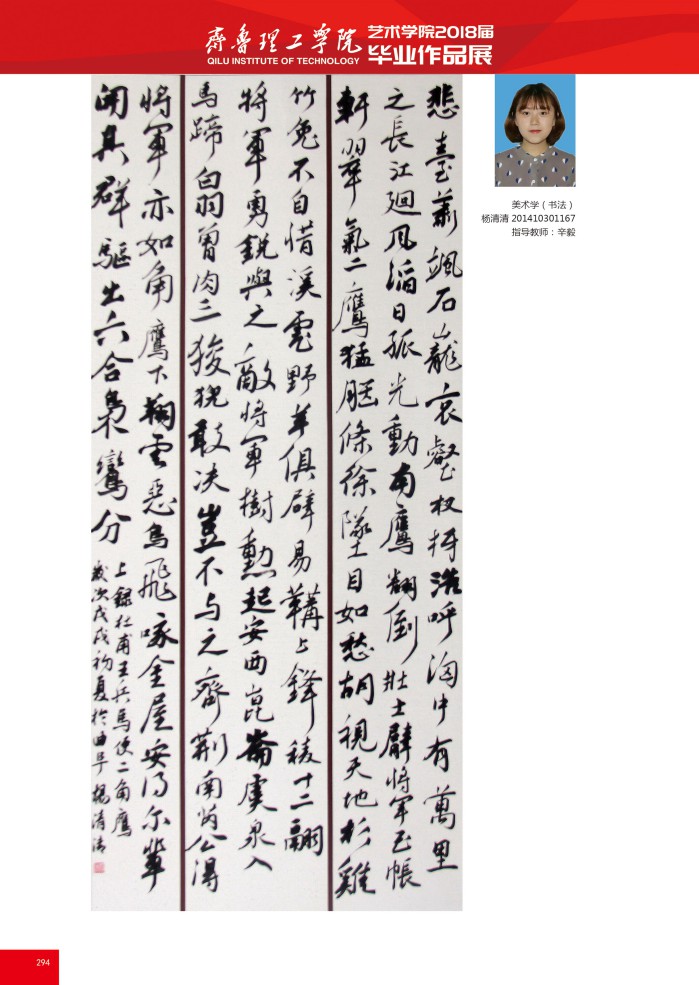 齊魯理工學院
QILU INSTITUTE OF TECHNOLOGY
艺术学院2018届
毕业作品展
美术学（书法）
杨清清 201410301167
指导教师：辛毅
悲臺蕭颯石巃嵸哀壑杈枒浩呼洶中有萬里
之長江廻風滔日孤光動角鷹翻倒壯士臂將軍玉帳
軒翠氣二鷹猛腦條徐墜目如愁胡視天地杉雞
竹兔不自惜溪虎野羊俱辟易鞲上鋒稜十二翮
將軍勇銳與之敵將軍樹勳起安西崑崙虞泉入
馬蹄白羽曾肉三狻猊敢决豈不与之齊荆南芮公得
將軍亦如角鷹下翔雲惡鳥飛啄金屋安得尔輩
開其群驅出六合梟鸞分
上錄杜甫王兵馬使二角鷹
歲次戊戌初夏於曲阜楊清清
294